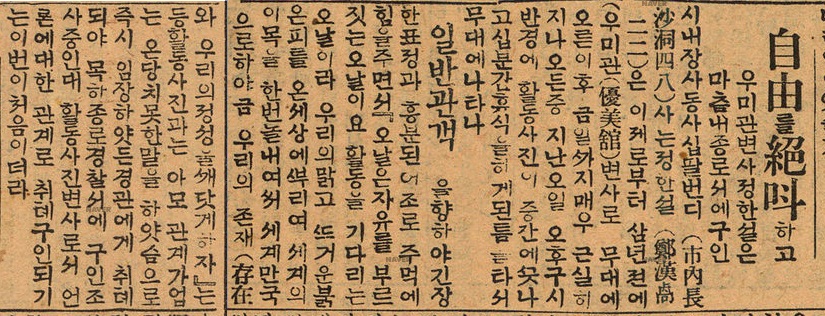 自由를絕叫하고
우미관변사정한설은
마츰내종로서에구인
시내장사동사십팔번디 (市內長
沙洞四八) 사는 정한설 (鄭漢卨
二二)은 이제로부터 삼년전에
(우미관(優美舘)변사로 무대에
오른이후 금일까지매우 근실히
지나오든중 지난오일 오후구시
반경에 활동사진이 중간에끗나
고십분간휴식을하게된틈을타서
무대에나타나
일반관객을향하야긴장
한표정과 흥분된어조로 주먹에
힘을주면서『오날은자유를 부르
짓는오날이요 활동을 기다리는
오날이라 우리의맑고 뜨거운붉
은피를 온세상에뿌리여 세계의
이목을 한번놀내여써 세계만국
으로하야금 우리의 존재 (存在
와 우리의정성을깨닷게하자』는
등활동사진과는 아모 관계가업
는 온당치못한말을 하얏슴으로
즉시 임장하얏든경관에게 취톄
되야 목하종로경찰서에 구인조
사중인대 활동사진변사로서 언
론에대한 관계로 취톄구인되기
는이번이처음이더라